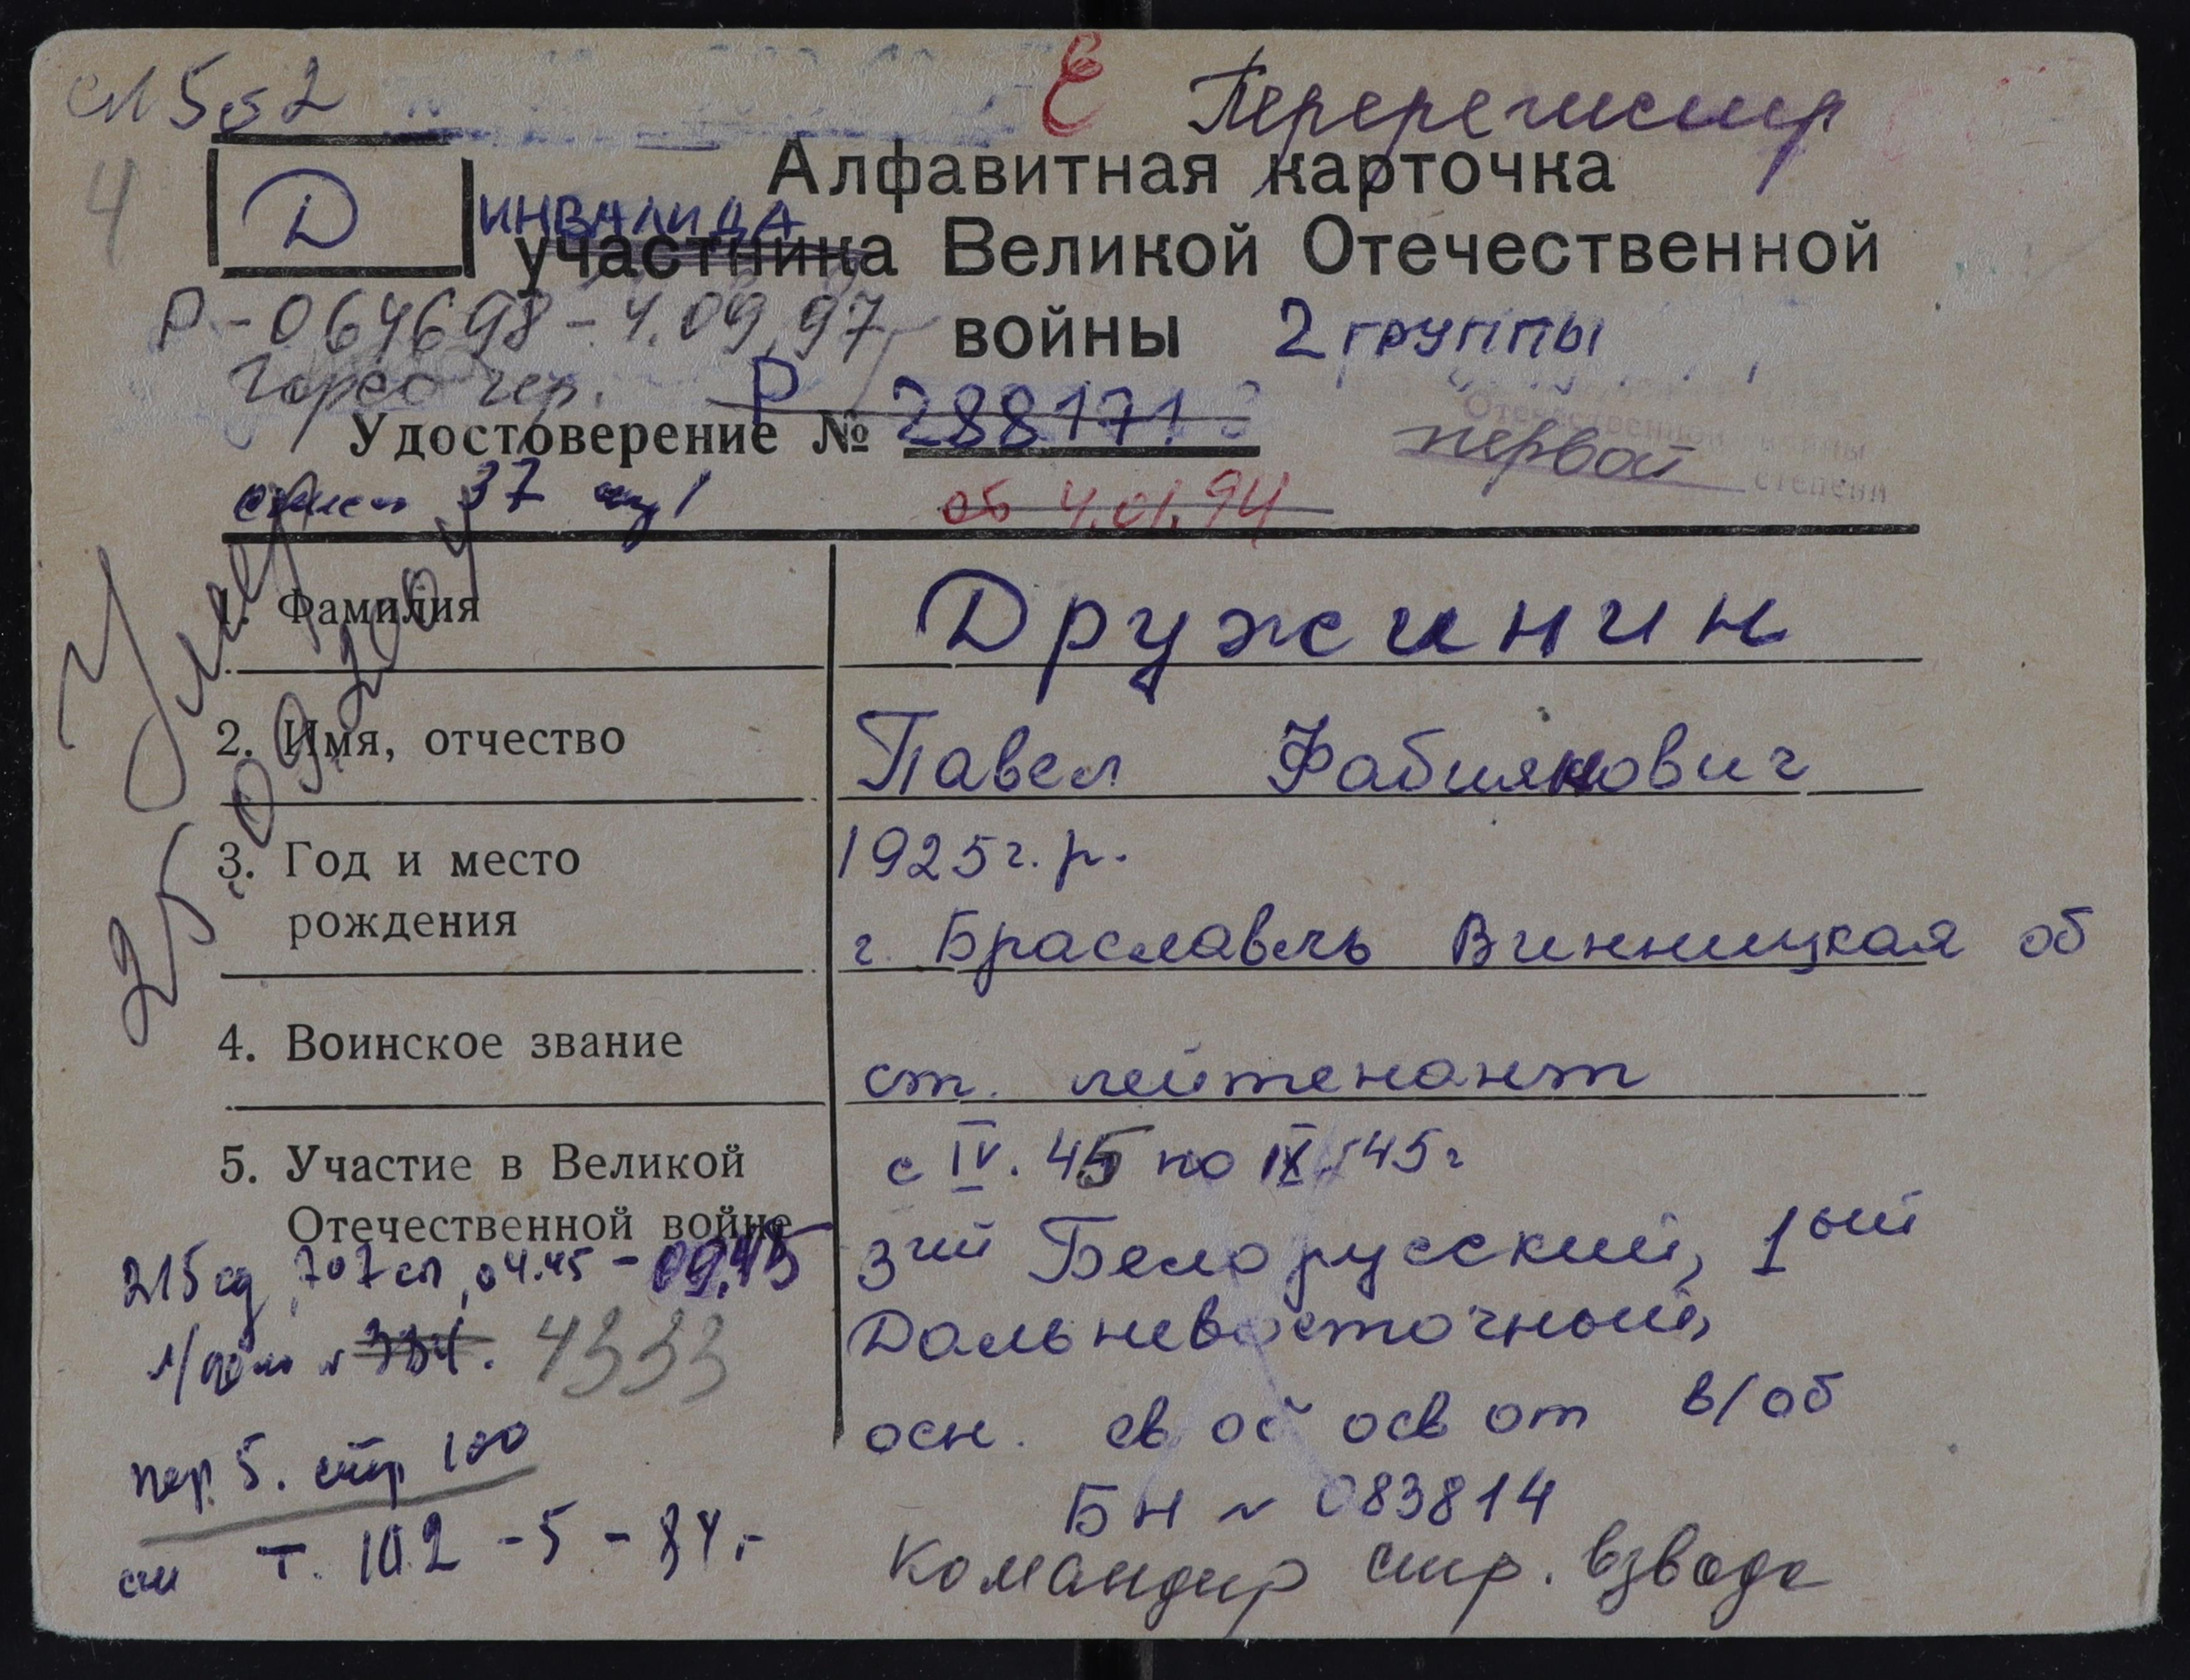 Е Перерегистр
4
Д
Алфавитная карточка
ИНВАЛИДА
участника Великой Отечественной
Р-064698-4.09.97
войны 2 группы
Р
Удостоверение № 288171
первой
Отечественной войны
степени
37
об 4.01.94
Умер
25.09.2004
1. Фамилия Дружинин
2. Имя, отчество Павел Фабиянович
3. Год и место 1925 г.р.
рождения г. Браславль Винницкая об
4. Воинское звание ст. лейтенант
5. Участие в Великой с IV. 45 по IX. 45 г
Отечественной войне
3ий Белорусский, 1ый
215 сд, 707 сп, 04.45 - 09.45
Дальневосточный,
4333
осн. св об осв от в/об
пер. 5. стр 100
БН № 083814
Т. 102 - 5 - 84.-
Командир стр. взвода